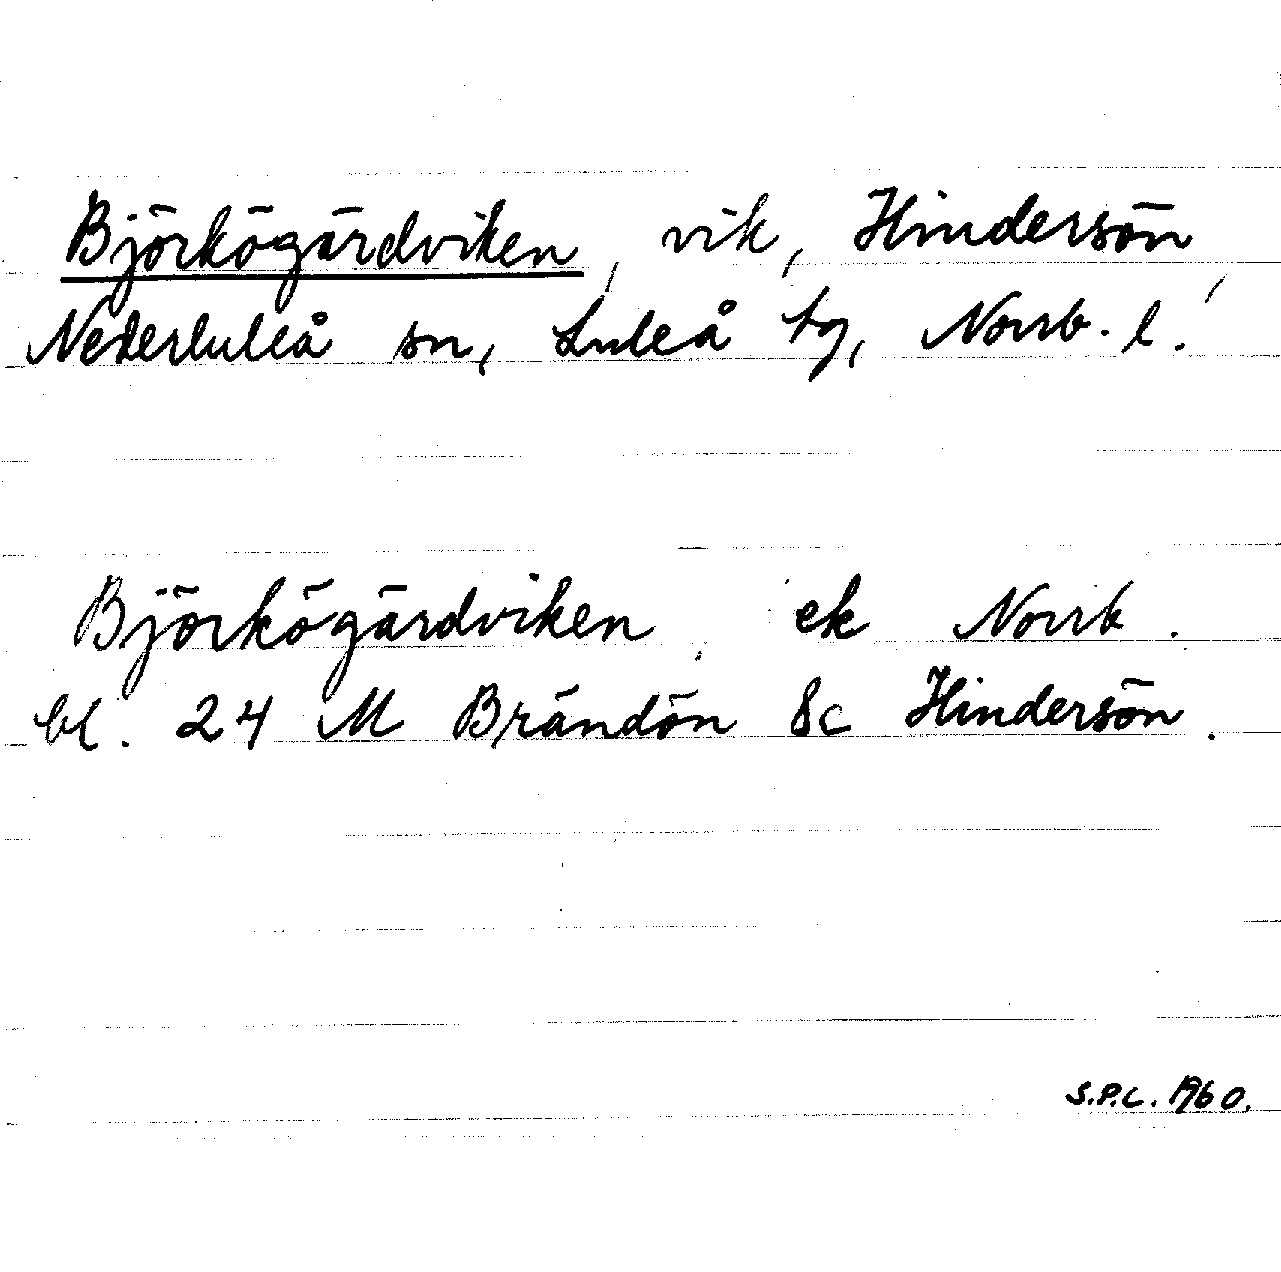 Björkögärdviken, vik, Hindersön,
Nederluleå sn, Luleå tg, Norrb. l.
Björkögärdviken, ek Norrb.
bl. 24 M Brändön &c Hindersön.
S.P.C. 1960.